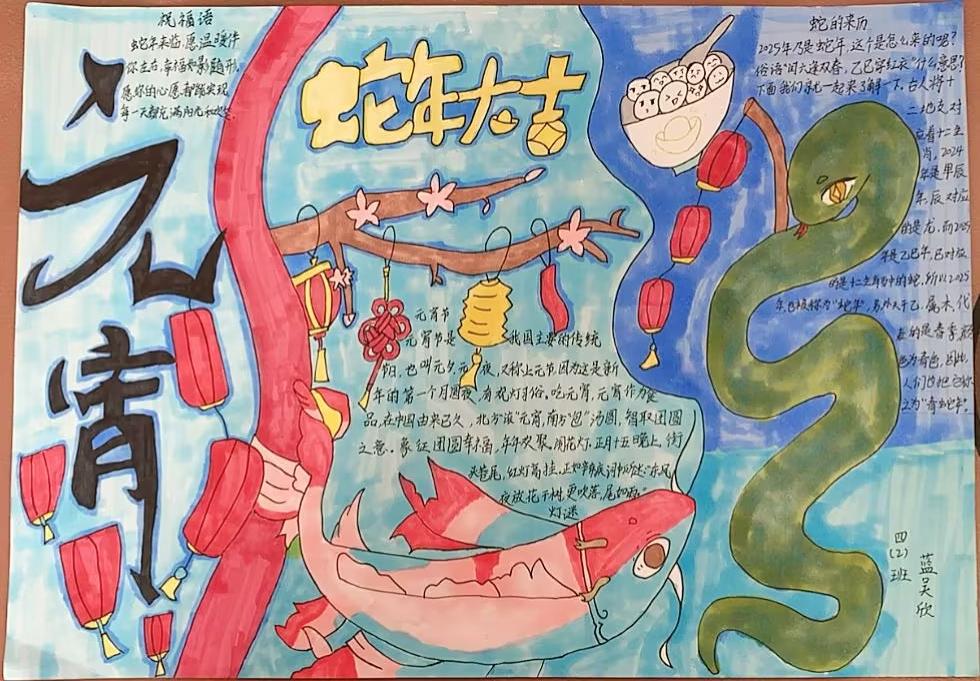 祝福语
蛇年来临，愿温暖伴
你左右，幸福如影随形，
愿你的心愿都能实现
每一天都充满阳光和欢笑
元宵
蛇年大吉
元宵节
元宵节是我国主要的传统
节日，也叫元夕、元夜，又称上元节，因为这是新
年的第一个月圆夜，有观灯习俗。吃元宵，元宵作为食
品，在中国由来已久，北方"滚"元宵，南方"包"汤圆，皆取团圆
之意。象征团圆幸福，年年欢聚，闹花灯，正月十五晚上，街
头巷尾，红灯高挂，正如辛弃疾词中所述："东风
夜放花千树，更吹落，星如雨"
灯谜
蛇的来历
2025年乃是蛇年，这个是怎么来的呢？
俗语"闰六逢双春，乙巳穿红衣"什么意思？
下面我们就一起来了解一下。古人将十
二地支对
应着十二生
肖，2024
年是甲辰
年，辰对应
的是龙，而2025
年是乙巳年，巳对应
的是十二生肖中的蛇，所以2025
年也被称为"蛇年"，另外天干乙，属木，代
表的是春季，颜
色为青色，因此，
人们也把它称
之为"青蛇年"。
四(2)班
蓝吴欣